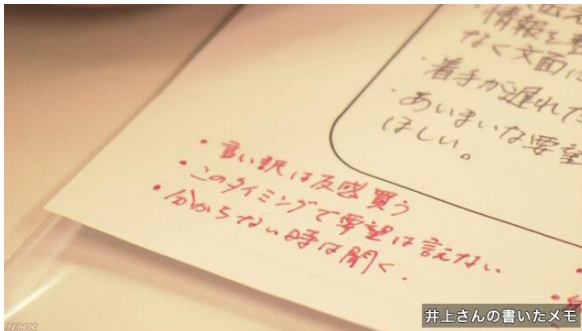 情報を整
なく文面に
・着手が遅れた
・あいまいな要望
ほしい。
・言い訳は反感買う
・このタイミングで要望は言えない
・分からない時は聞く.
井上さんの書いたメモ
NHK